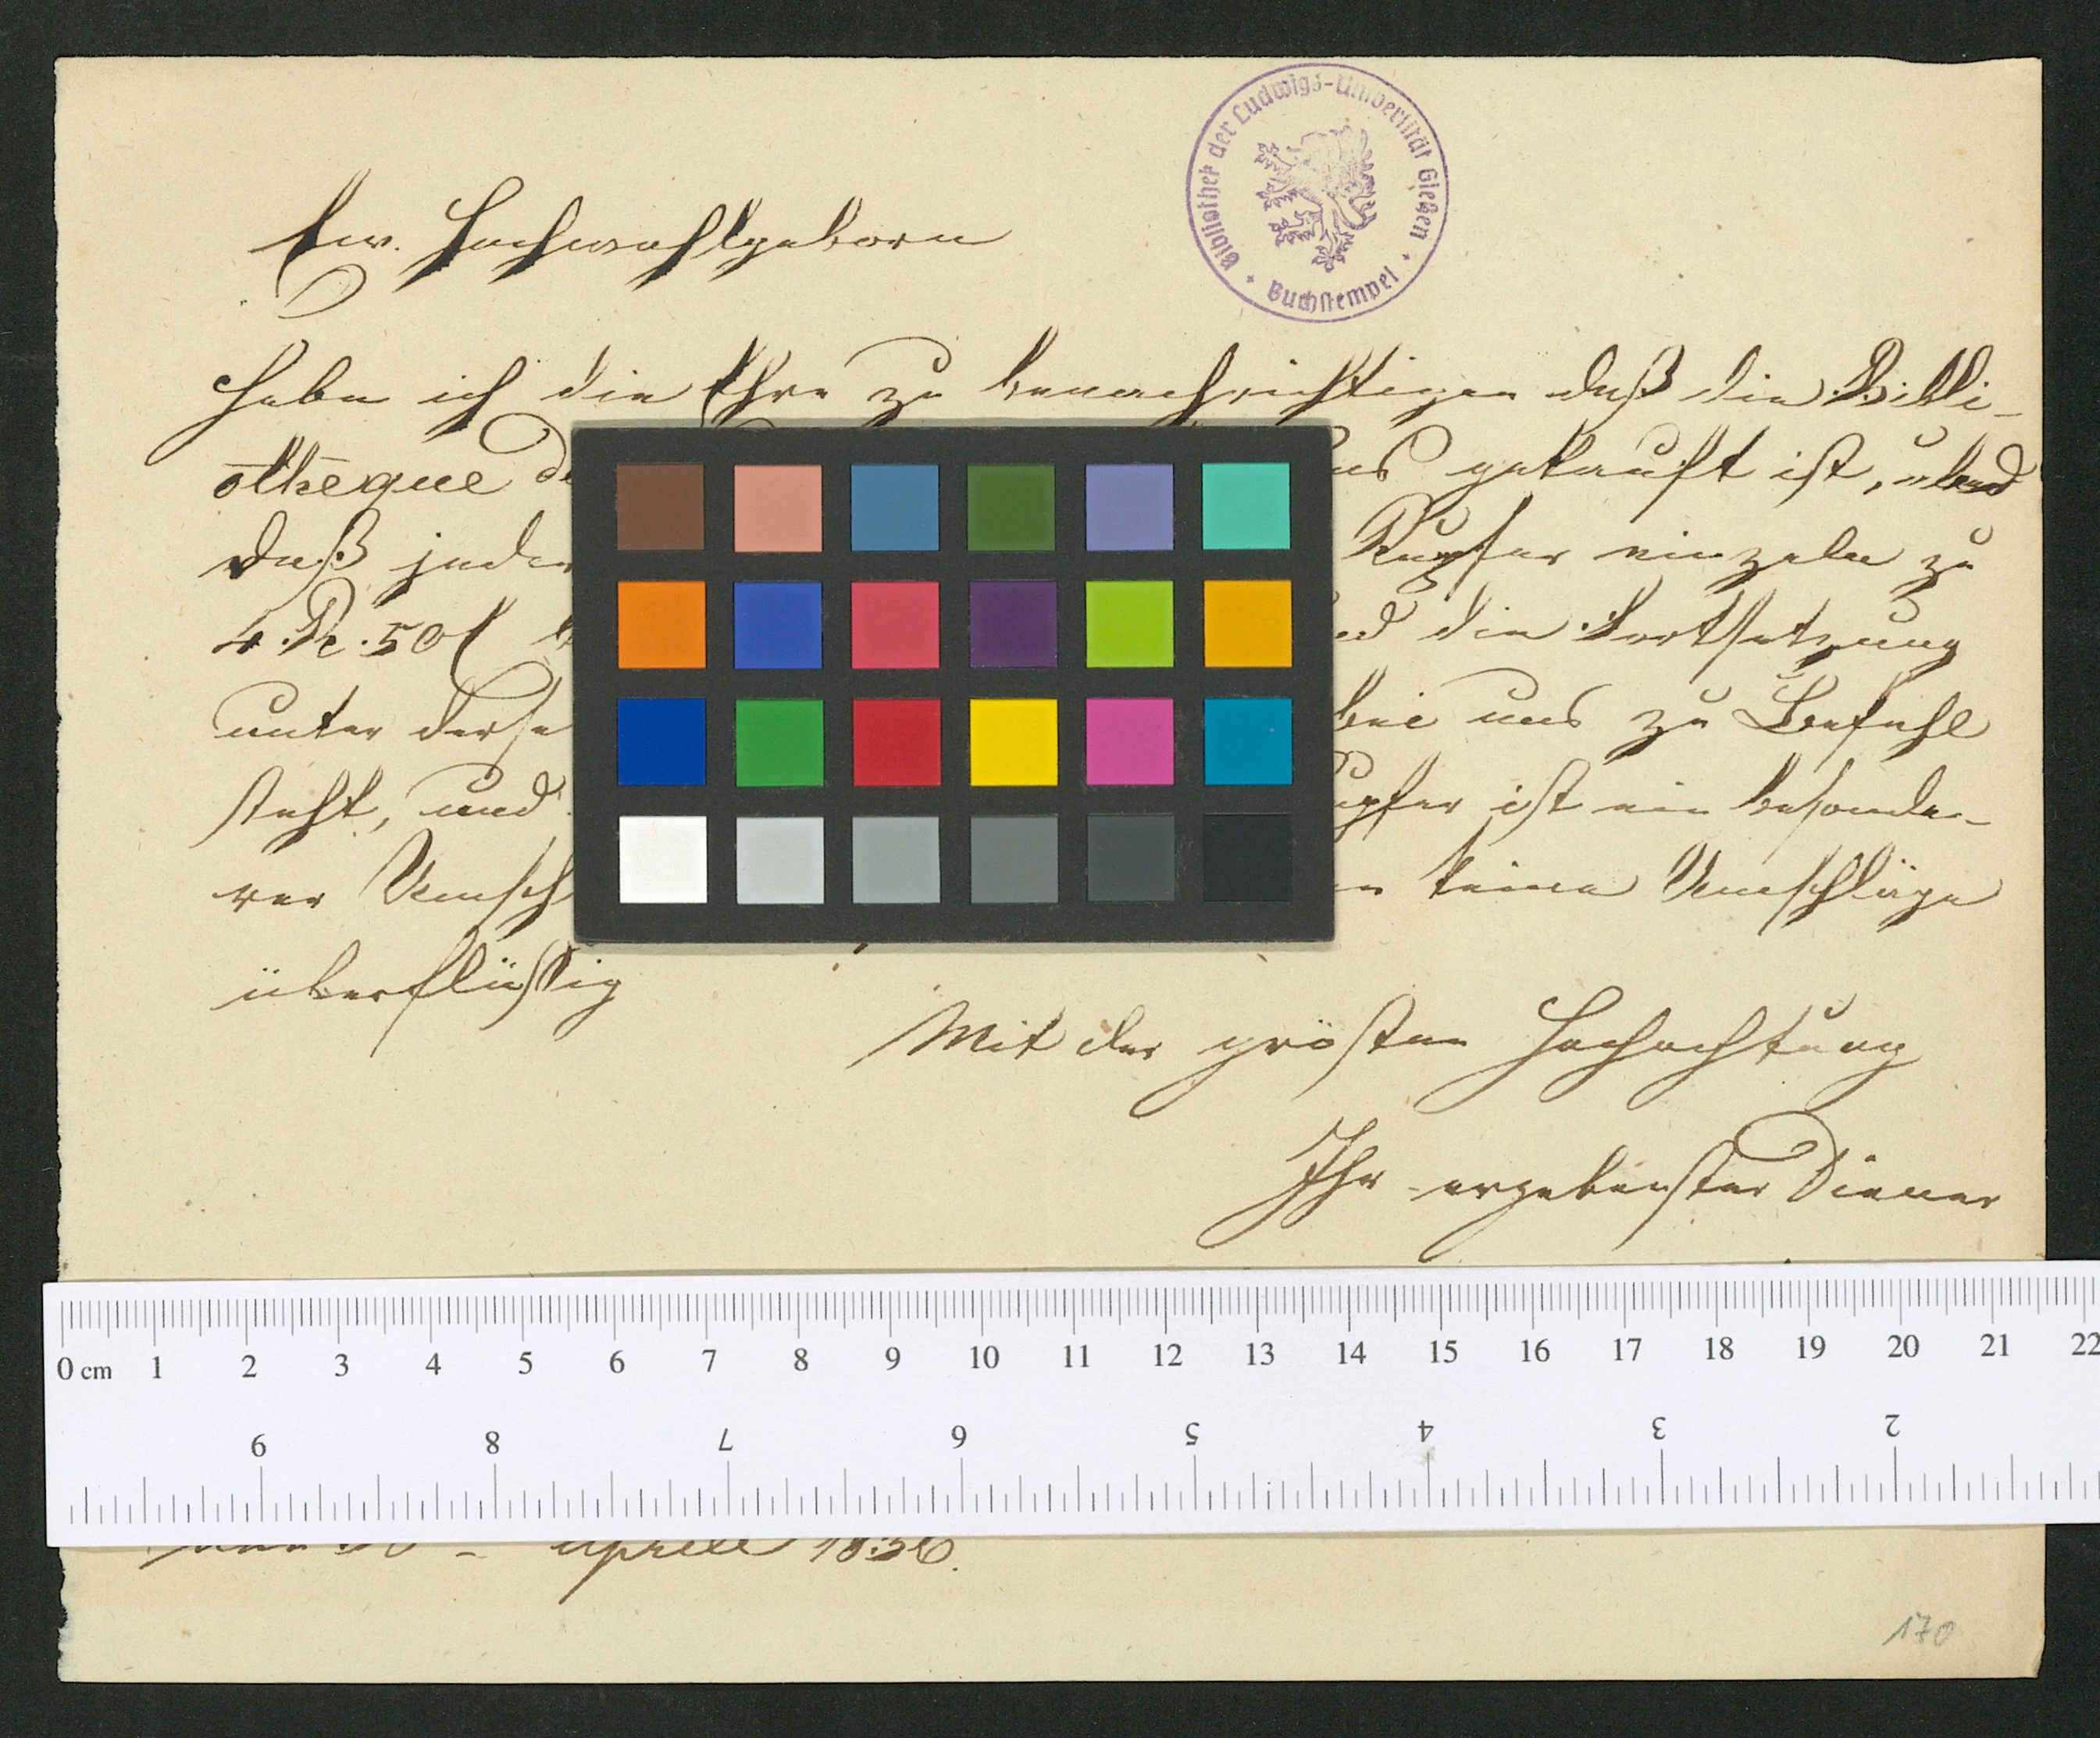 Bibliothek der Ludwigs-Universität Gießen
Buchstempel
Ew. Hochwohlgeborn
habe ich die Ehre zu benachrichtigen daß die Bibli-
othèque gekauft ist,
daß jeder Kupfer einzeln zu
4 50 die Fortsetzung
unter derse bei uns zu Befehl
steht, und upfer ist ein besonde-
rer Umsch keine Umschläge
überflüssig
Mit der grösten Hochachtung
Ihr ergebenster Diener
0 cm 1 2 3 4 5 6 7 8 9 10 11 12 13 14 15 16 17 18 19 20 21 22
9 8 7 6 5 4 3 2
Aprill 1836.
170